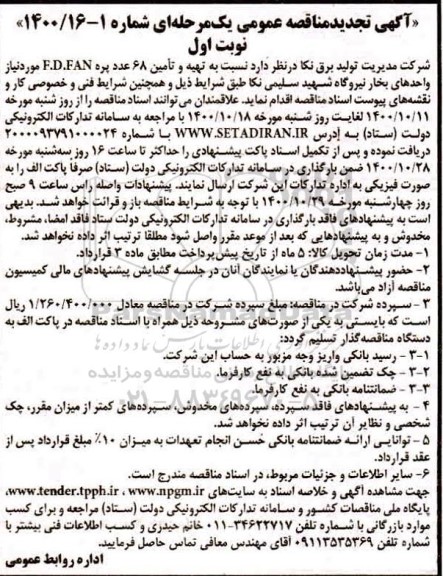 «آگهی تجدیدمناقصه عمومی یک‌مرحله‌ای شماره ۱-۱۴۰۰/۱۶»
نوبت اول
شرکت مدیریت تولید برق نکا درنظر دارد نسبت به تهیه و تأمین ۶۸ عدد پره F.D.FAN موردنیاز
واحدهای بخار نیروگاه شهید سلیمی نکا طبق شرایط ذیل و همچنین شرایط فنی و خصوصی کار و
نقشه‌های پیوست اسناد مناقصه اقدام نماید. علاقمندان می‌توانند اسناد مناقصه را از روز شنبه مورخه
۱۴۰۰/۱۰/۱۱ لغایت روز شنبه مورخه ۱۴۰۰/۱۰/۱۸ با مراجعه به سامانه تدارکات الکترونیکی
دولت (ستاد) به آدرس WWW.SETADIRAN.IR با شماره ۲۰۰۰۰۹۳۷۹۱۰۰۰۰۲۴
دریافت نموده و پس از تکمیل اسناد پاکت پیشنهادی را حداکثر تا ساعت ۱۶ روز سه‌شنبه مورخه
۱۴۰۰/۱۰/۲۸ ضمن بارگذاری در سامانه تدارکات الکترونیکی دولت (ستاد) صرفا پاکت الف را به
صورت فیزیکی به اداره تدارکات این شرکت ارسال نمایند. پیشنهادات واصله راس ساعت ۹ صبح
روز چهارشنبه مورخه ۱۴۰۰/۱۰/۲۹ با توجه به شرایط مناقصه باز و قرائت خواهد شد. بدیهی
است به پیشنهادهای فاقد بارگذاری در سامانه تدارکات الکترونیکی دولت ستاد فاقد امضا، مشروط،
مخدوش و به پیشنهادهایی که بعد از موعد مقرر واصل شود مطلقا ترتیب اثر داده نخواهد شد.
۱- مدت زمان تحویل کالا: ۵ ماه از تاریخ پیش‌پرداخت مطابق ماده ۳ قرارداد.
۲- حضور پیشنهاددهندگان یا نمایندگان آنان در جلسه گشایش پیشنهادهای مالی کمیسیون
مناقصه آزاد می‌باشد.
۳- سپرده شرکت در مناقصه: مبلغ سپرده شرکت در مناقصه معادل ۱/۲۶۰/۴۰۰/۰۰۰ ریال
است که بایستی به یکی از صورت‌های مشروحه ذیل همراه با اسناد مناقصه در پاکت الف به
دستگاه مناقصه‌گذار تسلیم گردد:
۳-۱- رسید بانکی واریز وجه مزبور به حساب این شرکت.
۳-۲- چک تضمین شده بانکی به نفع کارفرما.
۳-۳- ضمانتنامه بانکی به نفع کارفرما.
۴- به پیشنهادهای فاقد سپرده، سپرده‌های مخدوش، سپرده‌های کمتر از میزان مقرر، چک
شخصی و نظایر آن ترتیب اثر داده نخواهد شد.
۵- توانایی ارائه ضمانتنامه بانکی حسن انجام تعهدات به میزان ۱۰٪ مبلغ قرارداد پس از
عقد قرارداد.
۶- سایر اطلاعات و جزئیات مربوط، در اسناد مناقصه مندرج است.
جهت مشاهده آگهی و خلاصه اسناد به سایت‌های www.npgm.ir ، www.tender.tpph.ir،
پایگاه ملی مناقصات کشور و سامانه تدارکات الکترونیکی دولت (ستاد) مراجعه و برای کسب
موارد بازرگانی با شماره تلفن ۳۴۶۲۲۷۱۷-۰۱۱ خانم حیدری و کسب اطلاعات فنی بیشتر با
شماره تلفن ۰۹۱۱۳۵۳۵۳۶۹ آقای مهندس معافی تماس حاصل فرمایید.
اداره روابط عمومی
ParsNamadData
۰۲۱-۸۸۳۴۹۶۷۰-۵